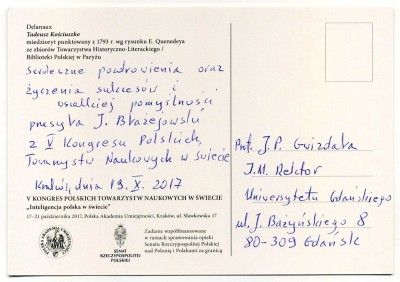 Delanaux
Tadeusz Kościuszko
miedzioryt punktowany z 1793 r. wg rysunku E. Quenedeya
ze zbiorów Towarzystwa Historyczno-Literackiego /
Biblioteki Polskiej w Paryżu
Serdeczne pozdrowienia oraz
życzenia sukcesów i
wszelkiej pomyślności
przesyła J. Błażejowski
z V Kongresu Polskich
Towarzystw Naukowych w Świecie
Kraków, dnia 19. X. 2017
V KONGRES POLSKICH TOWARZYSTW NAUKOWYCH W ŚWIECIE
„Inteligencja polska w świecie"
17-21 października 2017, Polska Akademia Umiejętności, Kraków, ul. Sławkowska 17
SENAT
RZECZYPOSPOLITEJ
POLSKIEJ
Zadanie współfinansowane
w ramach sprawowania opieki
Senatu Rzeczypospolitej Polskiej
nad Polonią i Polakami za granicą
Prof. J.P. Gwizdała
J.M. Rektor
Uniwersytetu Gdańskiego
ul. J. Bażyńskiego 8
80-309 Gdańsk